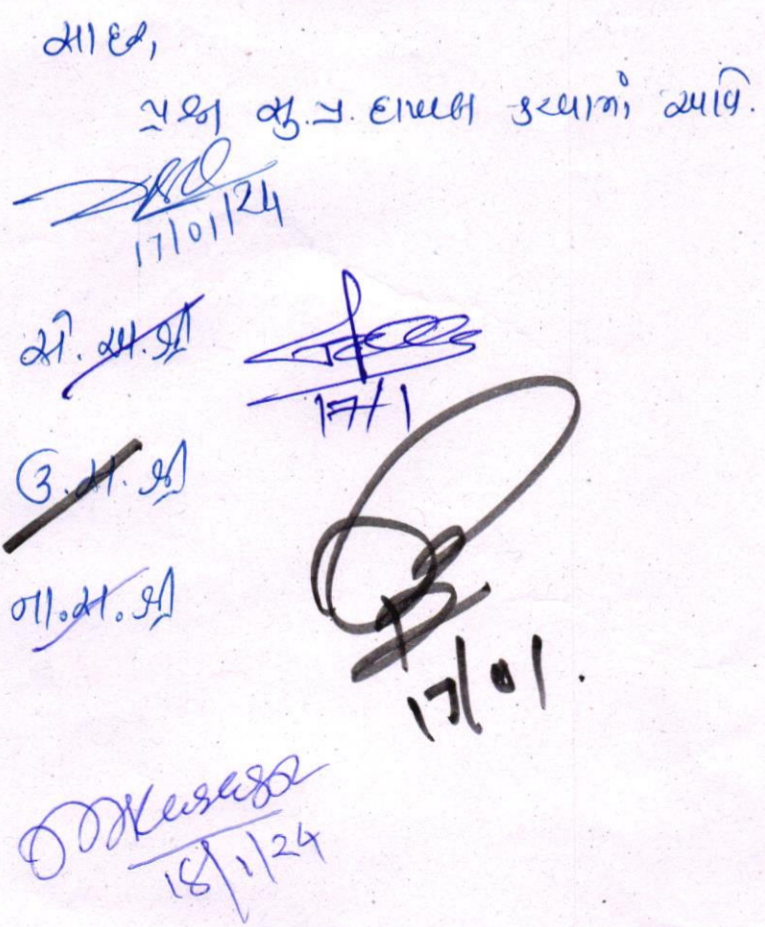 સાદર,
પ્રશ્ન મુ.પ્ર. દાખલ કરવામાં આવે.
17/01/24
સે. અ.શ્રી
17/1
ઉ.સ.શ્રી
ના.સ.શ્રી
17/01.
18/1/24